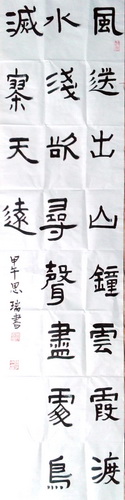 風送出山鐘雲霞渡
水淺欲尋聲盡處鳥
滅寥天遠
甲午思瑞書